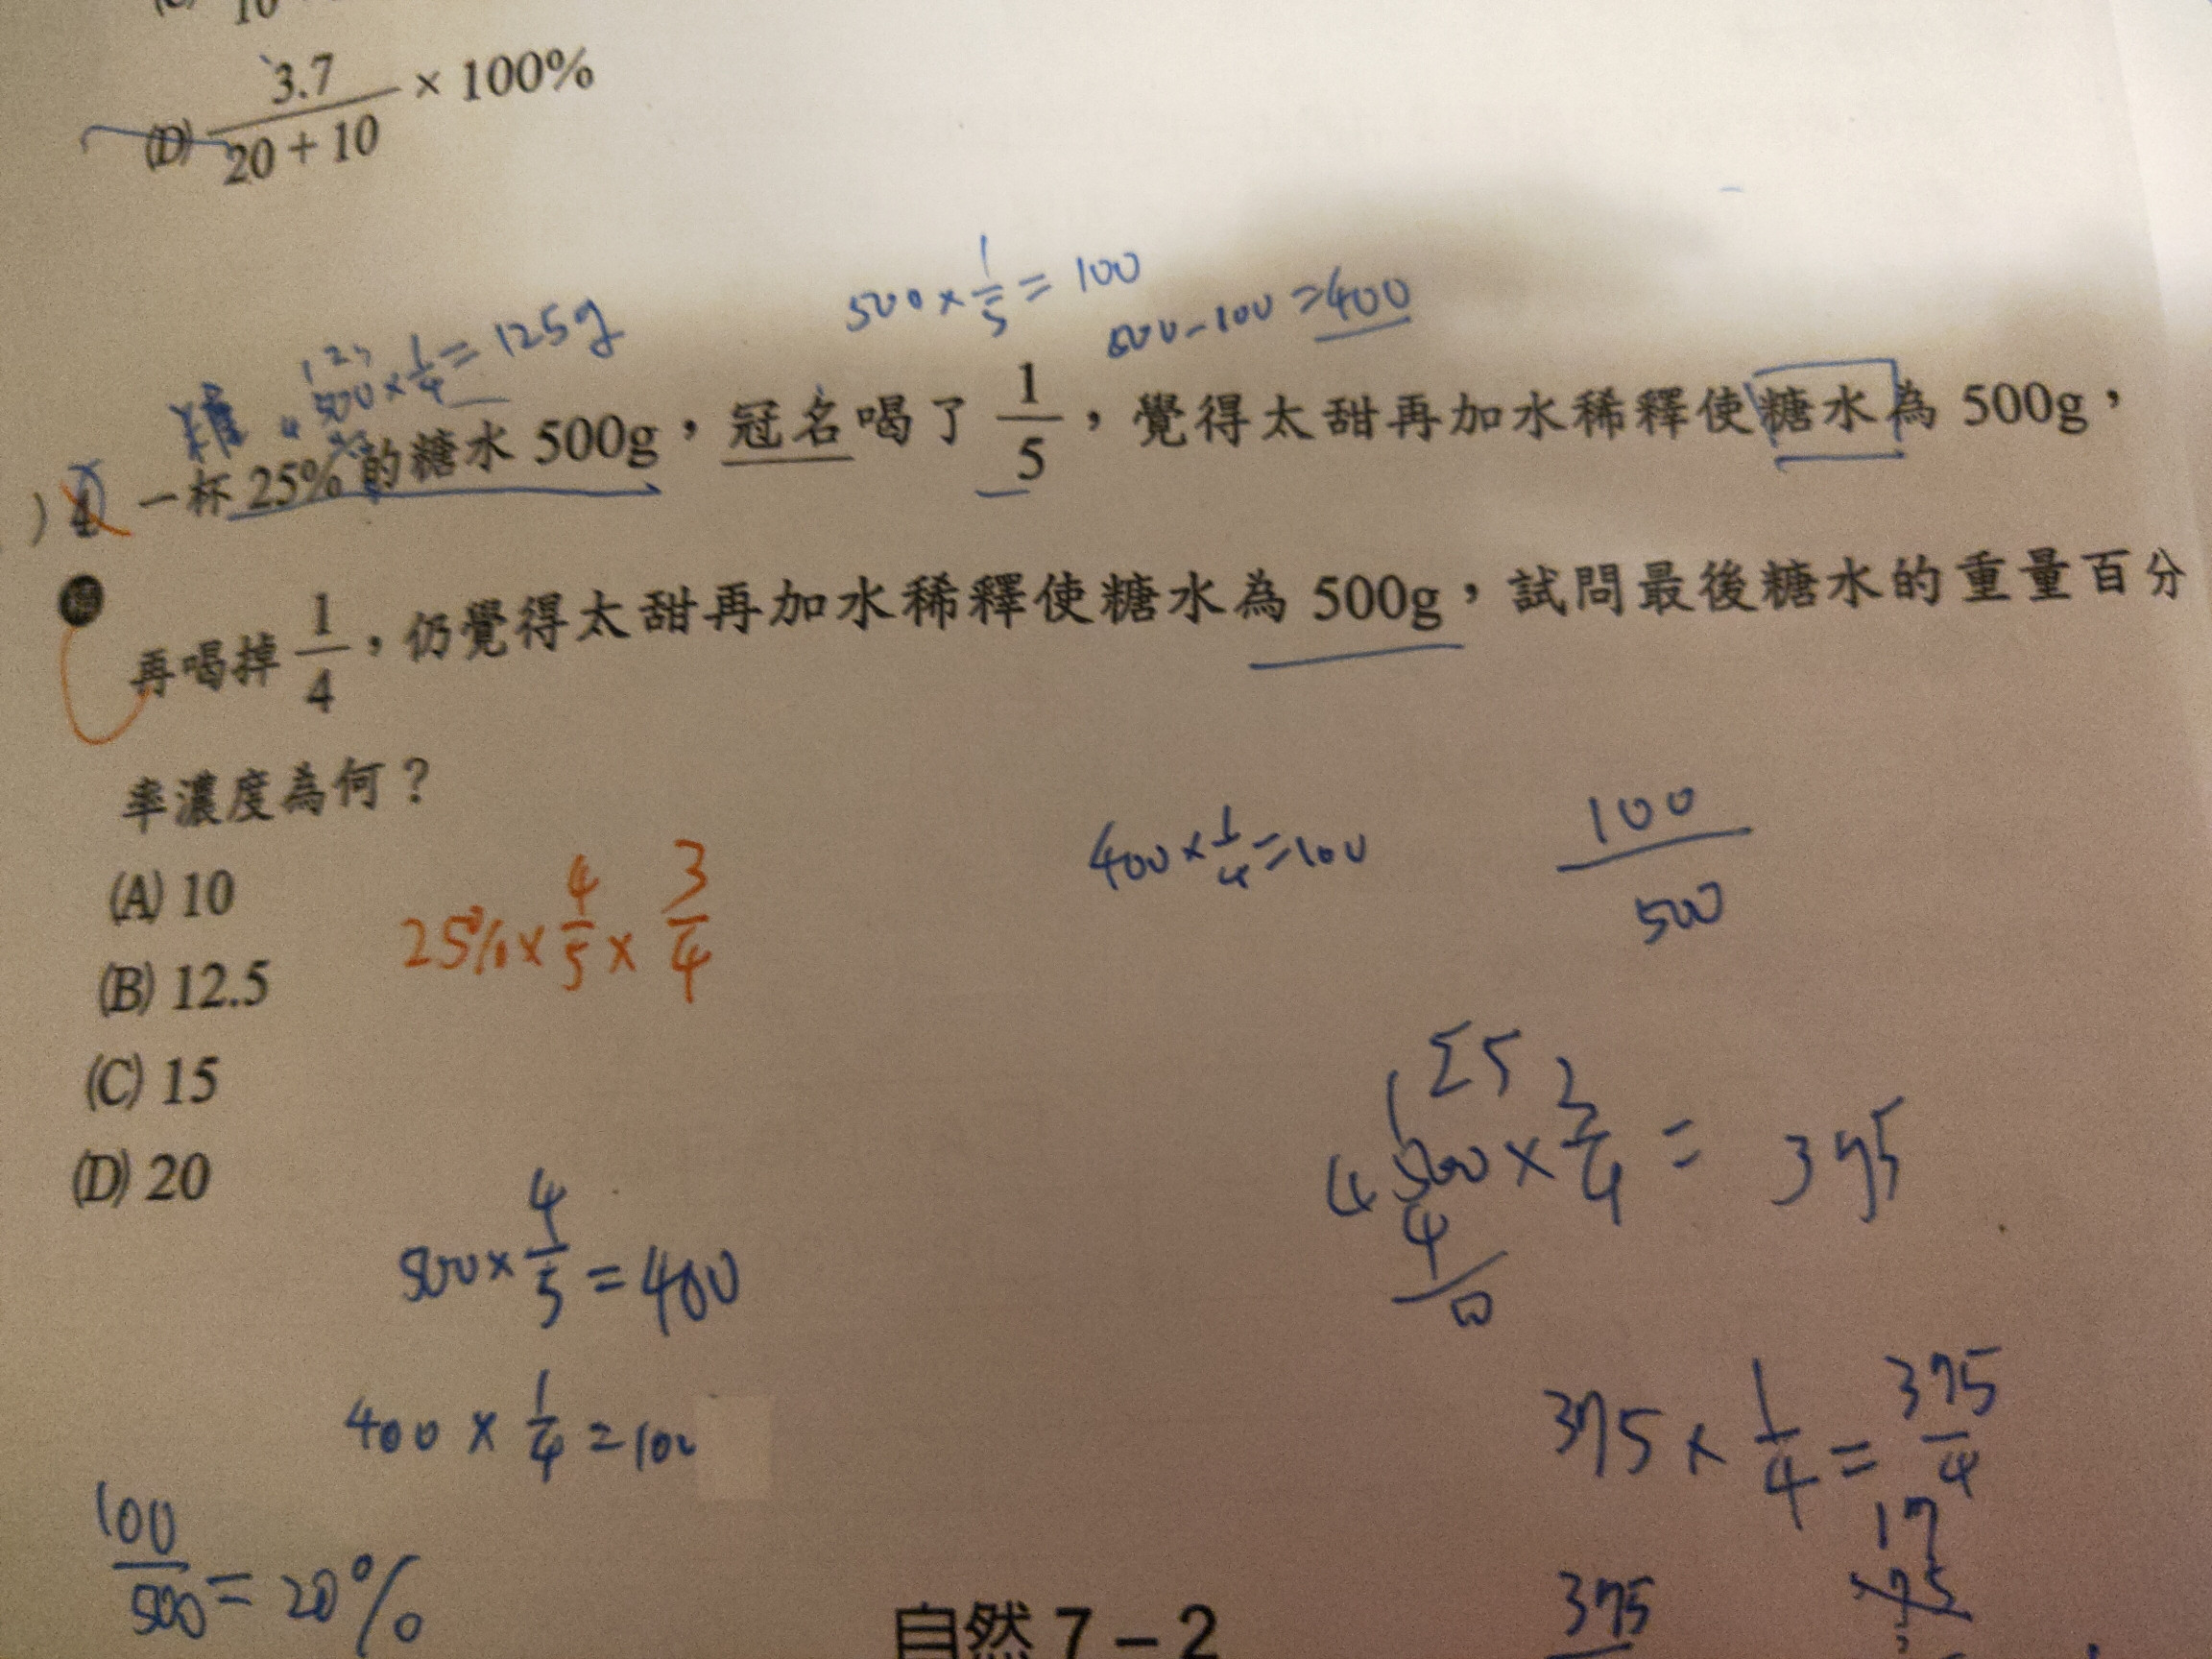 (D) 3.7/(20 + 10) × 100%
500 × 1/5 = 100
500 - 100 = 400
糖 500 × 1/4 = 125g
4 一杯 25% 的糖水 500g，冠名喝了 1/5，覺得太甜再加水稀釋使糖水為 500g，
再喝掉 1/4，仍覺得太甜再加水稀釋使糖水為 500g，試問最後糖水的重量百分
率濃度為何？
(A) 10
(B) 12.5
(C) 15
(D) 20
25% × 4/5 × 3/4
400 × 1/4 = 100
100/500
125
4 500 × 3/4 = 375
4
10
500 × 4/5 = 400
400 × 1/4 = 100
100/500 = 20%
375 × 1/4 = 375/4
375
自然 7 – 2